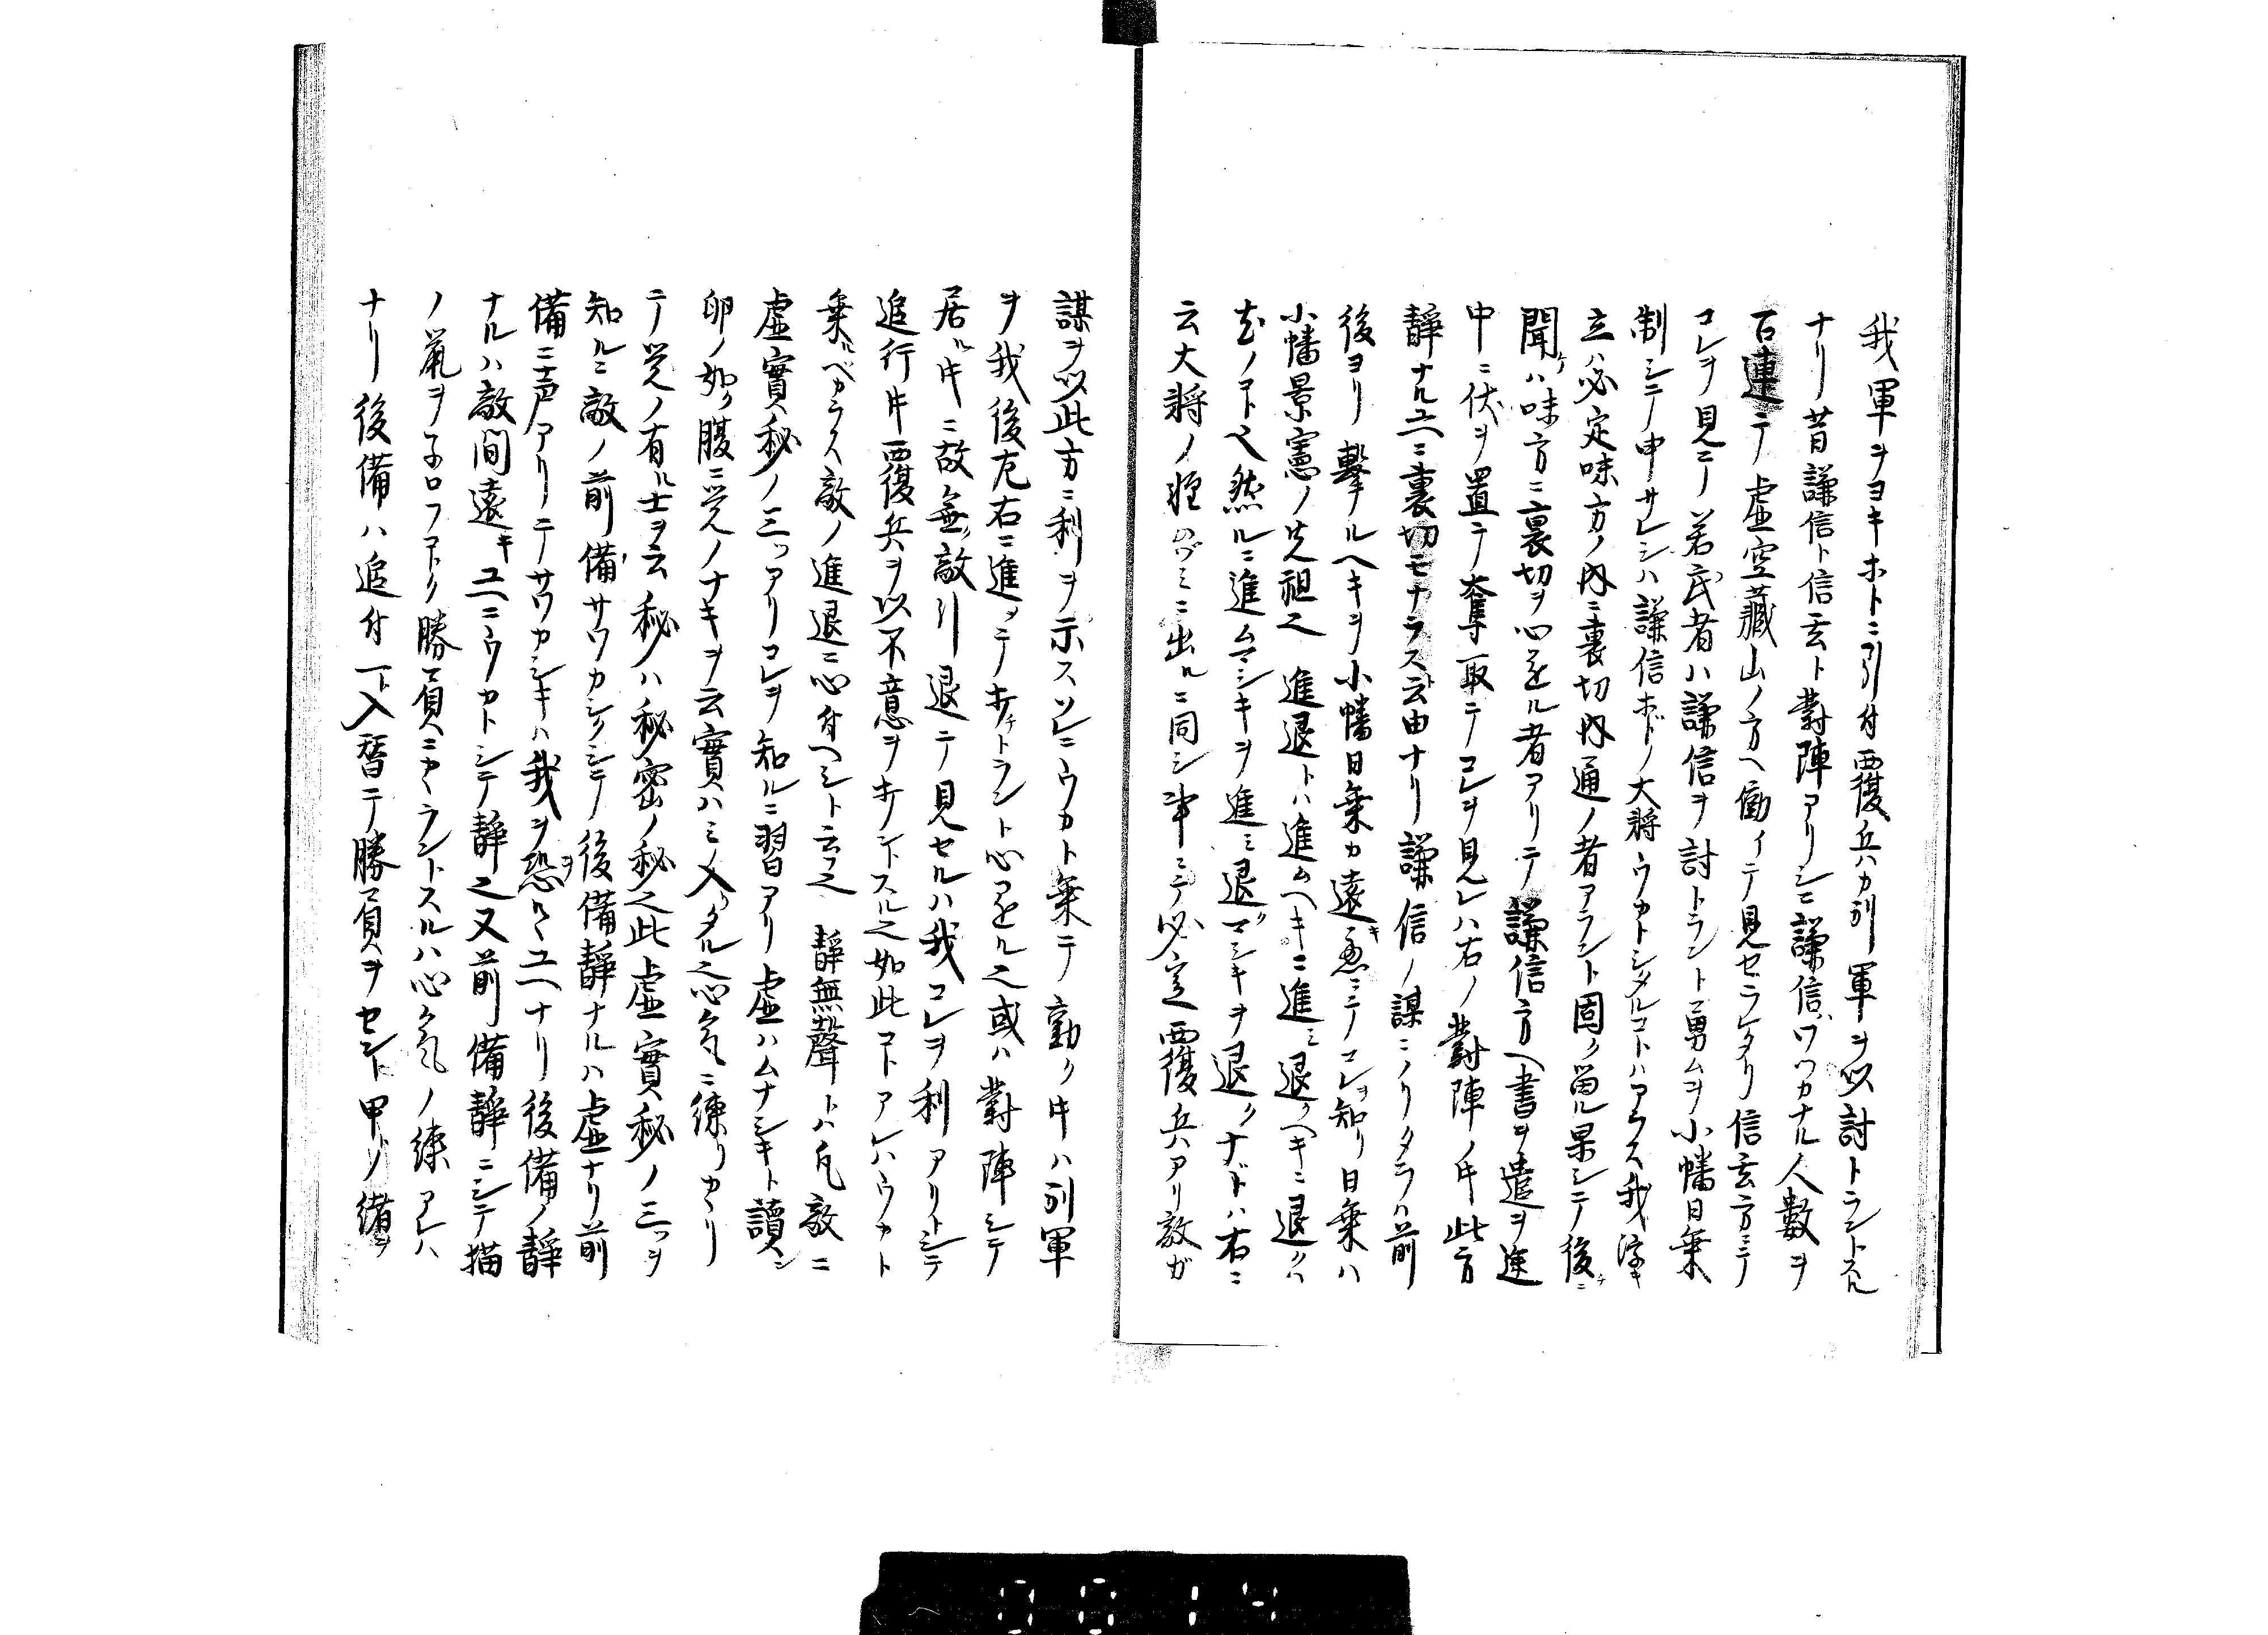 我軍ヲヨキホトニ引付覆兵ハカ別軍ヲ以討トラントスル
ナリ昔謙信ト信玄ト對陣アリシニ謙信ワツカナル人數ヲ
召連テ虚空藏山ノ方ヘ働イテ見セラレタリ信玄方ニテ
コレヲ見テ若武者ハ謙信ヲ討トラント勇ムヲ小幡日乗
制シテ申サレシハ謙信ホドノ大將ウカトシタルコトハアラス我
立ハ必定味方ノ内ニ裏切内通ノ者アラント固ク留ル果シテ後ニ
聞ケハ味方ニ裏切ヲ心ヱル者アリテ謙信方ヘ書ヲ遣ヲ途
中ニ伏ヲ置テ奪取テコレヲ見レハ右ノ對陣ノ寸此方
静ナルユヘニ裏切モナラス云由ナリ謙信ノ謀ニノリタラハ前
後ヨリ撃ルヘキヲ小幡日乗カ遠慮ニテコレヲ知リ日乗ハ
小幡景憲ノ先祖也 進退トハ進ムヘキニ進ミ退クヘキニ退クハ
ノコト也然ルニ進ムマシキヲ進ミ退クマシキヲ退クナドハ右ニ
云大將ノ物ノヅミニ出ルニ同シ事ニテ必定覆兵アリ敵ガ
謀ヲ以此方ニ利ヲ示スソレニウカト乗テ動ク寸ハ別軍
ヲ我後左右ニ進ツテキチトラント心ヱル也或ハ對陣シテ
居ル寸ニ故無ク敵引退テ見セルハ我コレヲ利アリトシテ
追行寸覆兵ヲ以不意ヲキントスル也如此コトアレハウカト
乗ルベカラス敵ノ進退ニ心付ヘシト云也 靜無聲トハ凡敵ニ
虚實秘ノ三ツアリコレヲ知ルニ習アリ虚ハムナシキト讀シ
卵ノ如ク腹ニ覚ノナキヲ云實ハミ入タル也心氣ニ練リカタリ
テ覚ノ有ル士ヲ云秘ハ秘密ノ秘也此虚實秘ノ三ツヲ
知ルニ敵ノ前備サワカシクシテ後備靜ナルハ虚ナリ前
備ニ声アリテサワカシキハ我ヲ恐ルヽユヘナリ後備ノ靜
ナルハ敵間遠キユヘニウカトシテ靜也又前備靜ニシテ猫
ノ鼠ヲネロフコトク勝負ニカヽラントスルハ心氣ノ練アレハ
ナリ後備ハ追付一ト入替テ勝負ヲセント甲ノ緒ヲ